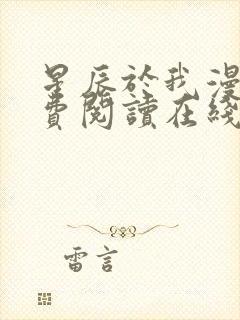 星辰於我漫
費閱讀在綫
雷言